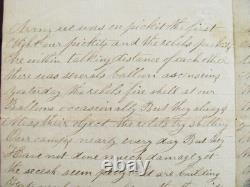 Army we was on pickit the first
Night our pickits and the rebels pickits
Are within talking distance of each other
there was several balloon ascensions
yesterday the rebels fire shell at our
Balloons occasionally But they always
their object the rebels try shelling
Our camps nearly every day But they
Have not done much damage yet
the secesh seem building